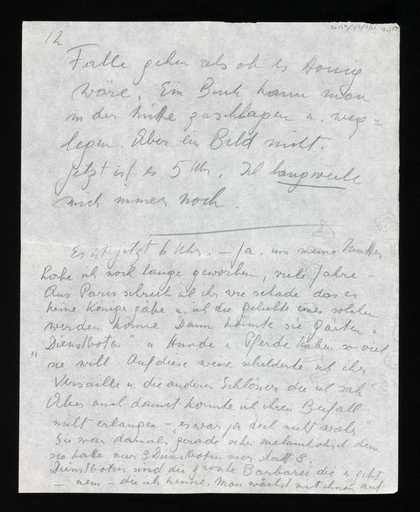 12
Falle gehen als ob es Honig
wäre. Ein Buch kann man
in der Mitte zuschlagen u. weg=
legen. Aber ein Bild nicht.
Jetzt ist es 5 Uhr. Ich langweile
mich immer noch.
Es ist jetzt 6 Uhr. – Ja, um meine Mutter
habe ich noch lange geworben, viele Jahre –
Aus Paris schrieb ich ihr wie schade dass es
keine Könige gäbe u. ich die Geliebte eines solchen
werden könne. Dann könnte sie Gärten u.
"Dienstboten" u Hunde u Pferde haben so viel
sie will. Auf diese weise schilderte ich ihr
Versailles u die anderen Schlösser die ich sah
Aber auch damit konnte ich ihren Beifall
nicht erlangen – es war ja doch nicht wahr
Sie war damals gerade sehr melancholisch denn
sie hatte nur 3 Dienstboten mehr statt 8.
Dienstboten sind die grösste Barbarei die es gibt
– nein – die ich kenne. Man wächst mit ihnen auf